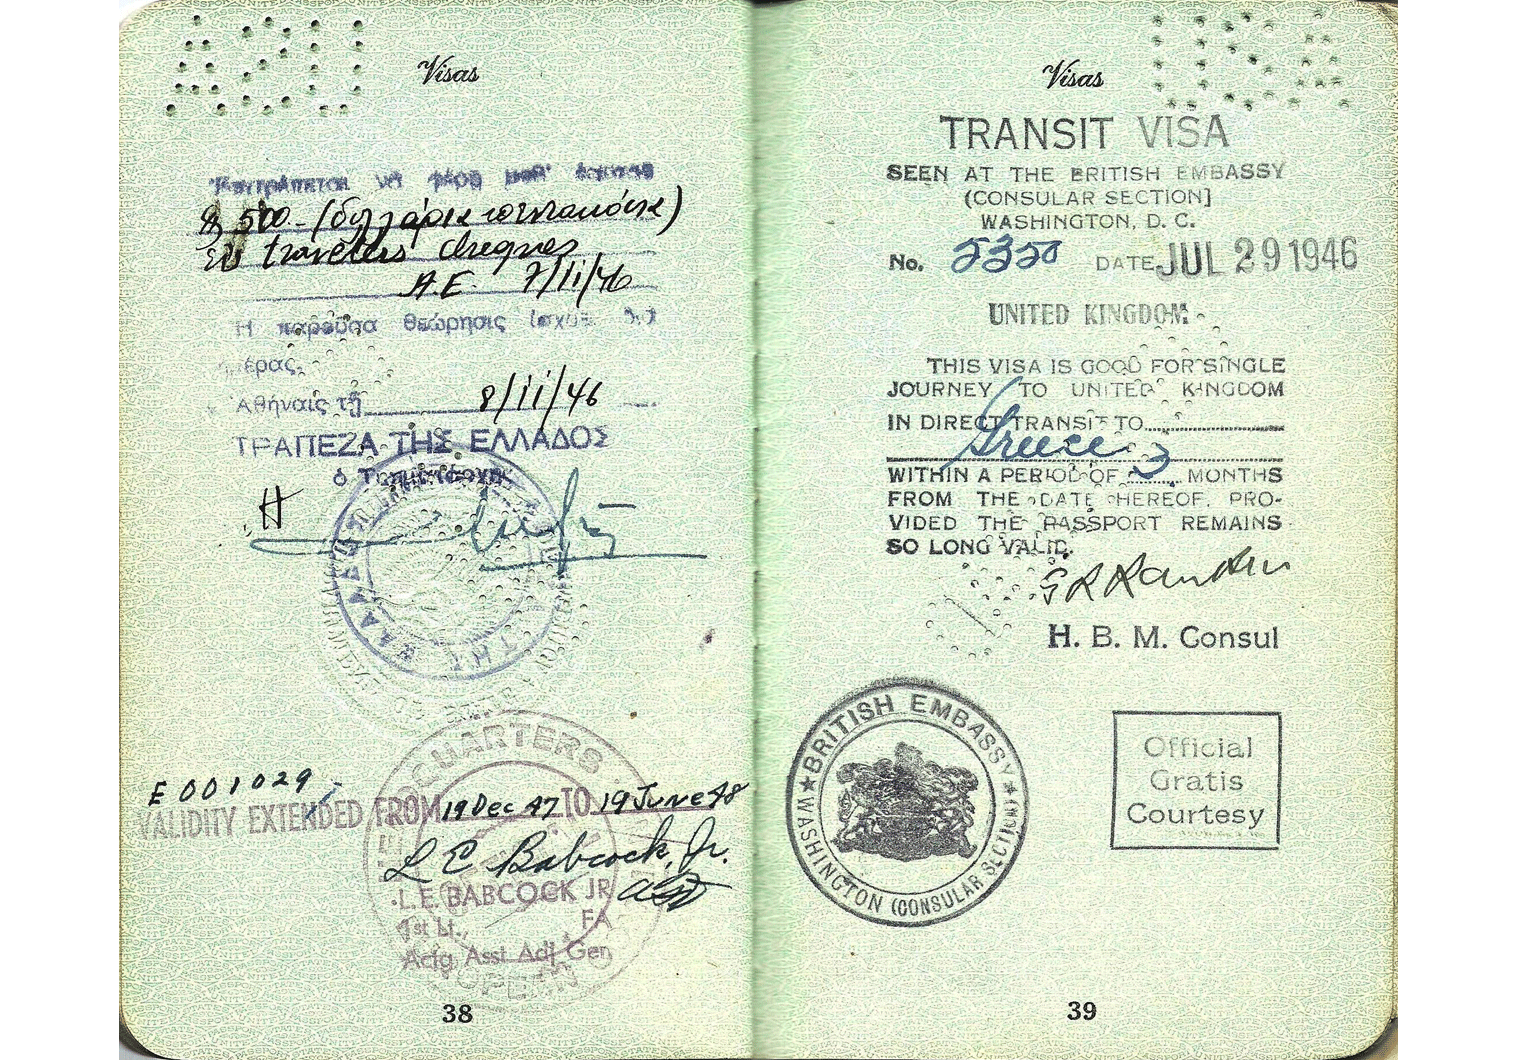 Visas
Ἐπιτρέπεται νὰ φέρῃ μεθ' ἑαυτοῦ
$ 500.- (δολλάρια πεντακόσια)
εἰς travelers cheques
A.E. 7/11/46
Ἡ παροῦσα θεώρησις ἰσχύει
ἡμέρας.
Ἀθήναις τῇ 8/11/46
ΤΡΑΠΕΖΑ ΤΗΣ ΕΛΛΑΔΟΣ
ὁ Τμηματάρχης
E 001029
VALIDITY EXTENDED FROM 19 Dec 47 TO 19 June 48
L E Babcock, Jr.
L.E. BABCOCK JR
1st Lt., FA
Actg Asst Adj Gen
38
Visas
USA
TRANSIT VISA
SEEN AT THE BRITISH EMBASSY
(CONSULAR SECTION]
WASHINGTON, D. C.
No. 5350 DATE JUL 29 1946
UNITED KINGDOM
THIS VISA IS GOOD FOR SINGLE
JOURNEY TO UNITED KINGDOM
IN DIRECT TRANSIT TO
Greece
WITHIN A PERIOD OF 3 MONTHS
FROM THE DATE HEREOF, PRO-
VIDED THE PASSPORT REMAINS
SO LONG VALID.
H. B. M. Consul
BRITISH EMBASSY
WASHINGTON (CONSULAR SECTION)
Official
Gratis
Courtesy
39